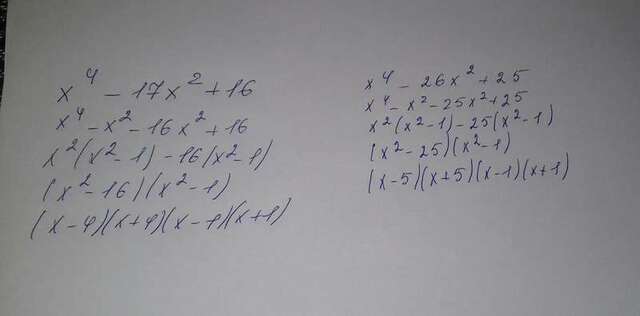 x⁴ - 17x² + 16
x⁴ - x² - 16x² + 16
x²(x² - 1) - 16(x² - 1)
(x² - 16)(x² - 1)
(x - 4)(x + 4)(x - 1)(x + 1)
x⁴ - 26x² + 25
x⁴ - x² - 25x² + 25
x²(x² - 1) - 25(x² - 1)
(x² - 25)(x² - 1)
(x - 5)(x + 5)(x - 1)(x + 1)